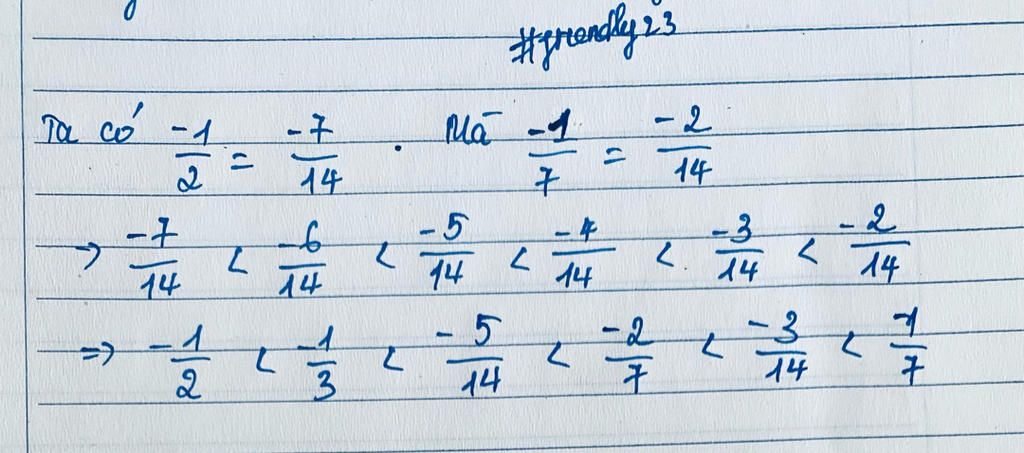 #friendly23
Ta có -1/2 = -7/14 . Mà -1/7 = -2/14
-> -7/14 < -6/14 < -5/14 < -4/14 < -3/14 < -2/14
=> -1/2 < -1/3 < -5/14 < -2/7 < -3/14 < -1/7